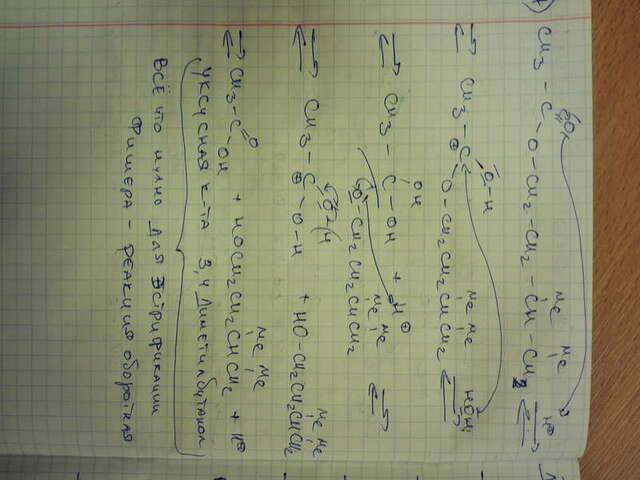 CH3 - C - O - CH2 - CH2 - CH - CH2 ⇄ H⊕
Me Me
⇄ CH3 - C - O - CH2CH2CH2CHCH2 ⇄
O-H
⊕
Me Me
HOH
⇄ CH3 - C - OH + H⊕ ⇄
OH
O-CH2CH2CHCH2
Me Me
⇄ CH3 - C - O-H + HO-CH2CH2CHCH2
⊕
Me Me
⇄ CH3-C=O OH + HOCH2CH2CHCH2 + H⊕
Me Me
уксусная к-та 3,4 диметилбутанол
Всё что нужно для этерификации
Фишера - реакция оборотная